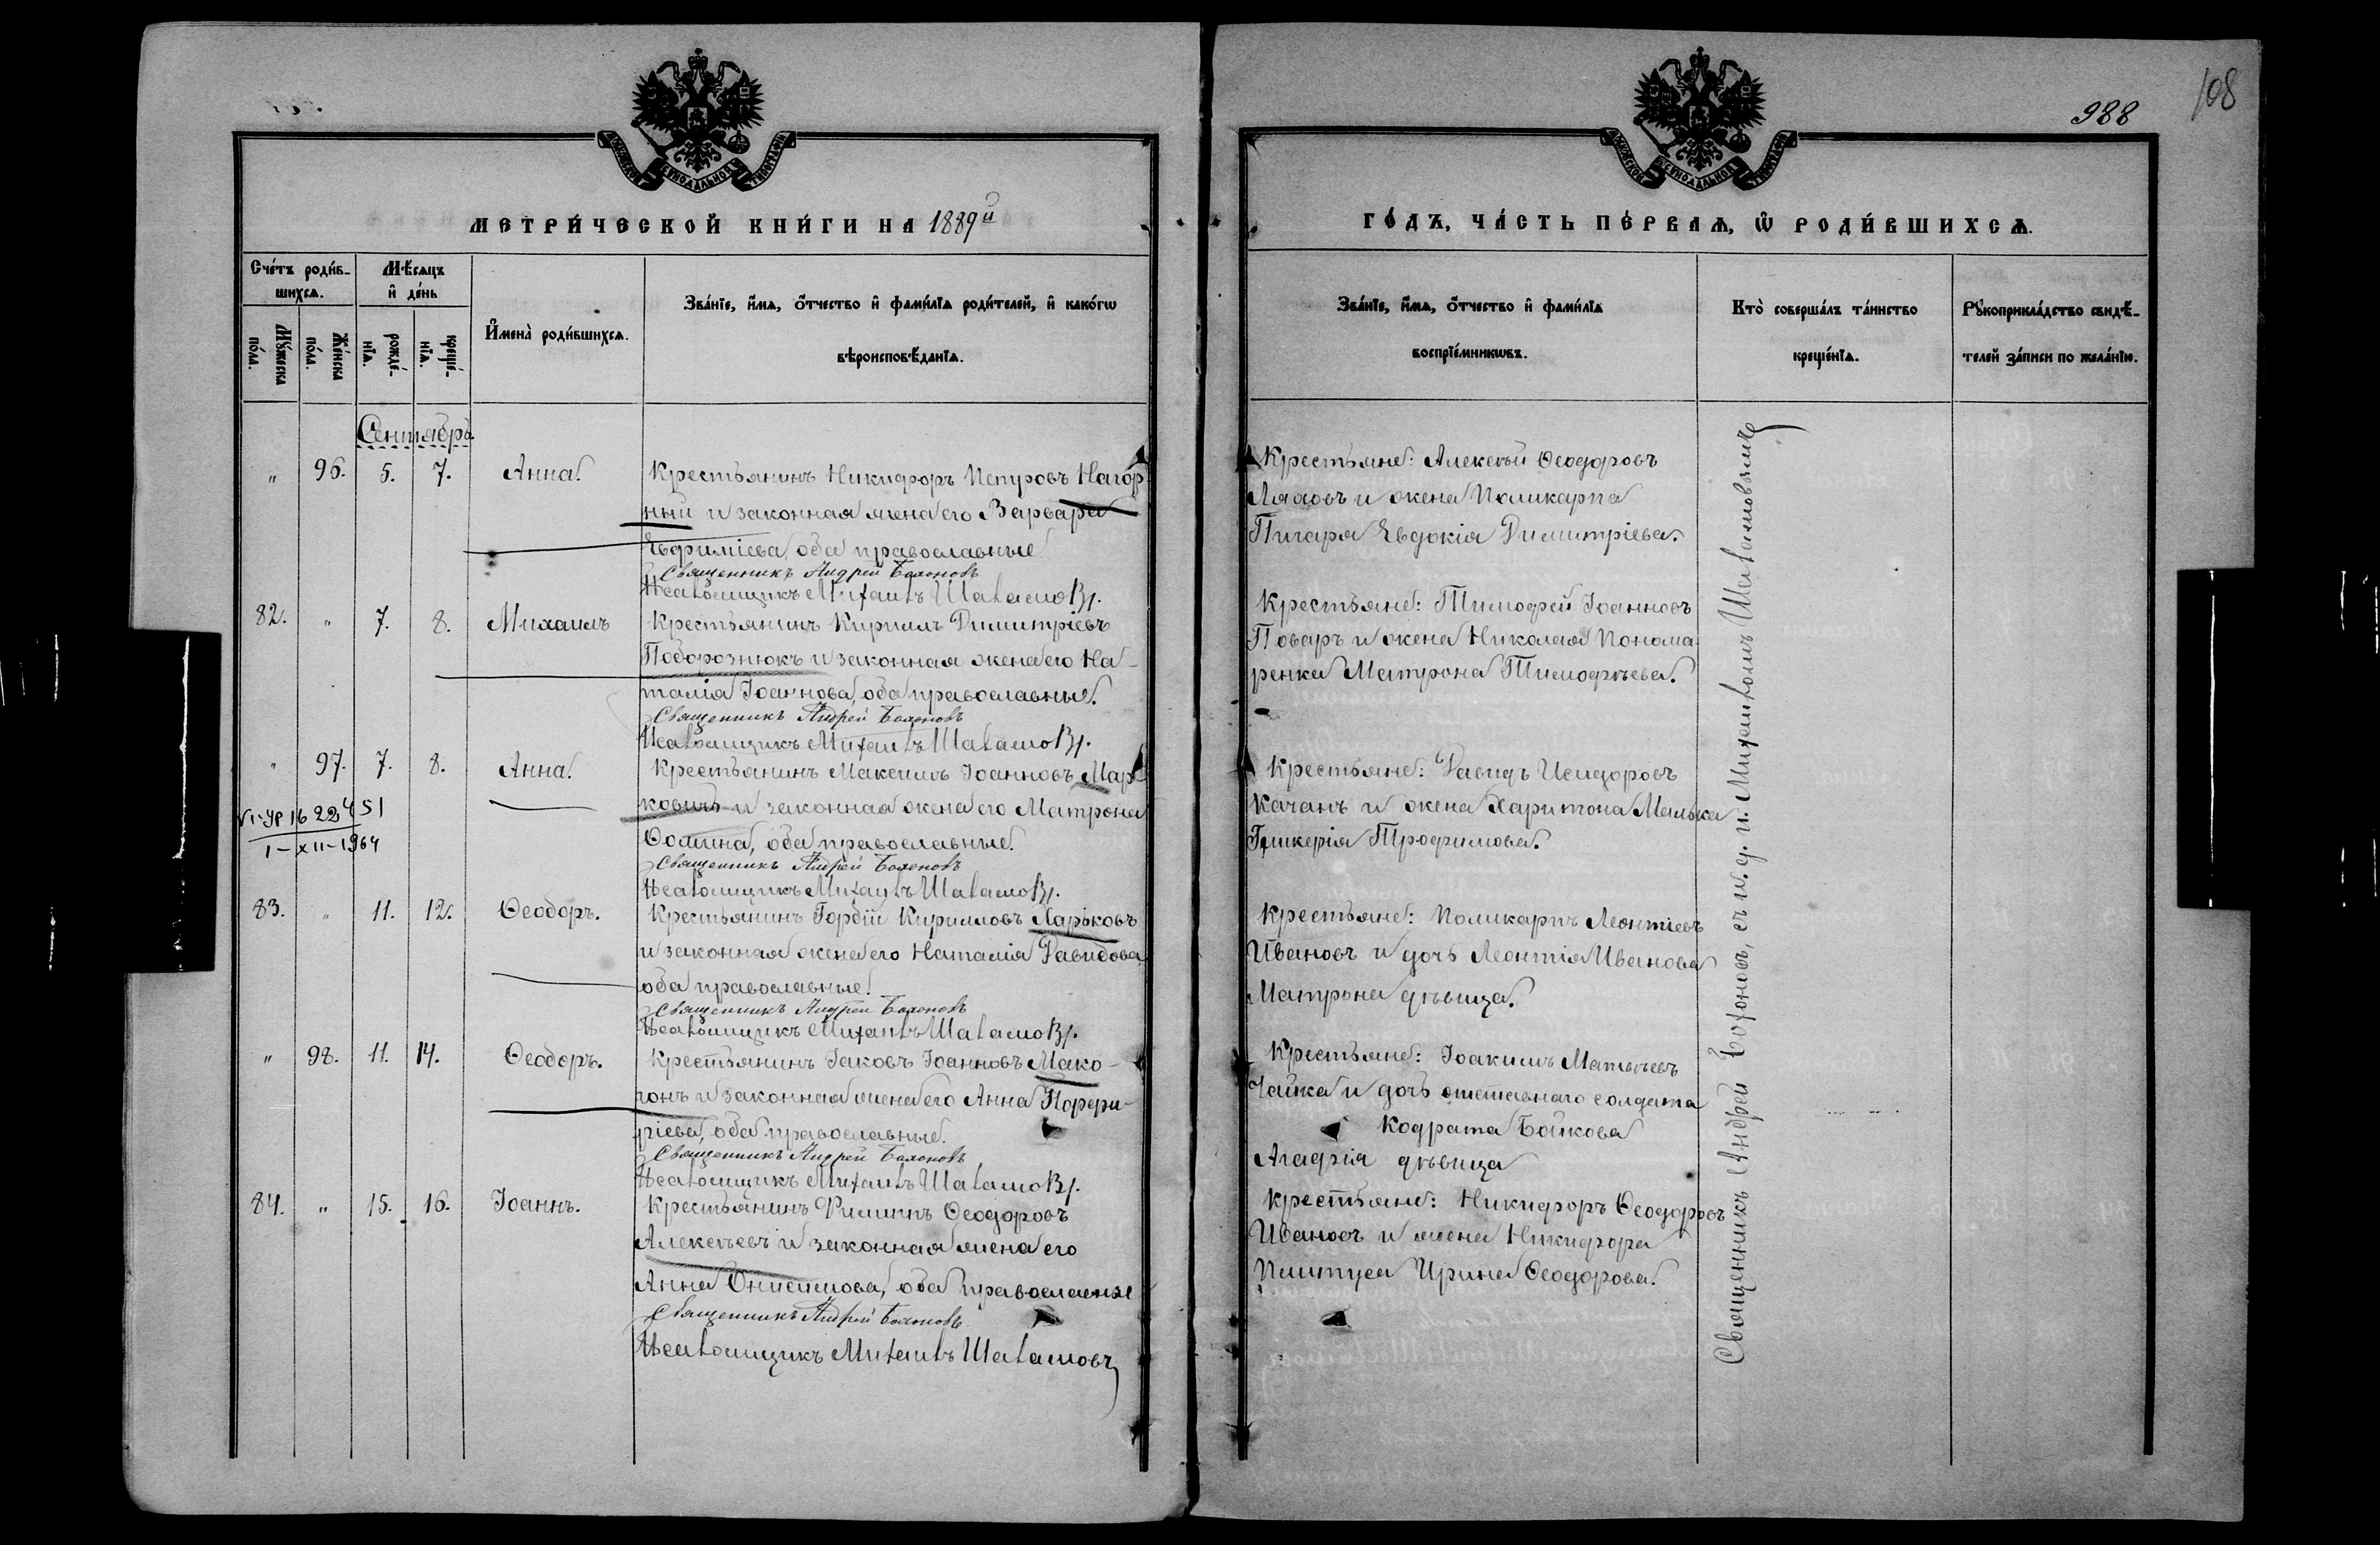 988
108
МЕТРИ́ЧЕСКОЙ КНИ́ГИ НА 1889й
ГО́ДЪ, ЧА́СТЬ ПЕ́РВАЯ, Ѡ РОДИ́ВШИХСЯ.
Сче́тъ роди́в-
шихся.
Мѣ́сяцъ
и де́нь
Му́жеска
по́ла.
Же́нска
по́ла.
рожде́-
нїя.
креще́-
нїя.
Имена̀ роди́вшихся.
Зва́нїе, и́мя, ѻ́тчество и фами́лїя роди́телей, и како́гѡ
вѣроисповѣ́данїя.
Зва́нїе, и́мя, ѻ́тчество и фами́лїя
воспрїе́мникѡвъ.
Кто̀ соверша́лъ та́инство
креще́нїя.
Рꙋкоприкла́дство свидѣ́-
телей за́писи по жела́нїю.
Сентябрь
" 96. 5. 7. Анна. Крестьянинъ Никифоръ Петровъ Нагор-
ный и законная жена его Варвара
Евфиміева, оба православные
Священникъ Андрей Бахоновъ
Псаломщикъ Михаилъ Шаламовъ.
Крестьяне: Алексѣй Ѳеодоровъ
Ляховъ и жена Поликарпа
Пигаря Евдокія Димитріева.
82. " 7. 8. Михаилъ Крестьянинъ Кириллъ Димитріевъ
Подорознюкъ и законная жена его На-
талія Іоаннова, оба православные.
Священникъ Андрей Бахоновъ
Псаломщикъ Михаилъ Шаламовъ.
Крестьяне: Тимофей Іоанновъ
Поваръ и жена Николая Понома-
ренка Матрона Тимофѣева.
" 97. 7. 8. Анна. Крестьянинъ Максимъ Іоанновъ Мар-
ковичъ и законная жена его Матрона
Ѳомина, оба православные.
Священникъ Андрей Бахоновъ
Псаломщикъ Михаилъ Шаламовъ.
VI-УР 16 22451
I-XII-1964
Крестьяне: Давидъ Исидоровъ
Качанъ и жена Харитона Малька
Гликерія Трофимова.
83. " 11. 12. Ѳеодоръ. Крестьянинъ Гордій Кирилловъ Харьковъ
и законная жена его Наталія Давидова
оба православные.
Священникъ Андрей Бахоновъ
Псаломщикъ Михаилъ Шаламовъ.
Крестьяне: Поликарпъ Леонтіевъ
Ивановъ и дочь Леонтія Иванова
Матрона дѣвица.
" 98. 11. 14. Ѳеодоръ. Крестьянинъ Іаковъ Іоанновъ Мако-
гонъ и законная жена его Анна Порфи-
ріева, оба православные.
Священникъ Андрей Бахоновъ
Псаломщикъ Михаилъ Шаламовъ.
Крестьяне: Іоакимъ Матвѣевъ
Чайка и дочь отставнаго солдата
Кодрата Бойкова
Агафія дѣвица
84. " 15. 16. Іоаннъ. Крестьянинъ Филиппъ Ѳеодоровъ
Алексѣевъ и законная жена его
Анна Онисимова, оба православные
Священникъ Андрей Бахоновъ
Псаломщикъ Михаилъ Шаламовъ
Крестьяне: Никифоръ Ѳеодоровъ
Ивановъ и жена Никифора
Ирина Ѳеодорова.
Священникъ Андрей Бахоновъ, съ и. д. п. Михаиломъ Шаламовымъ